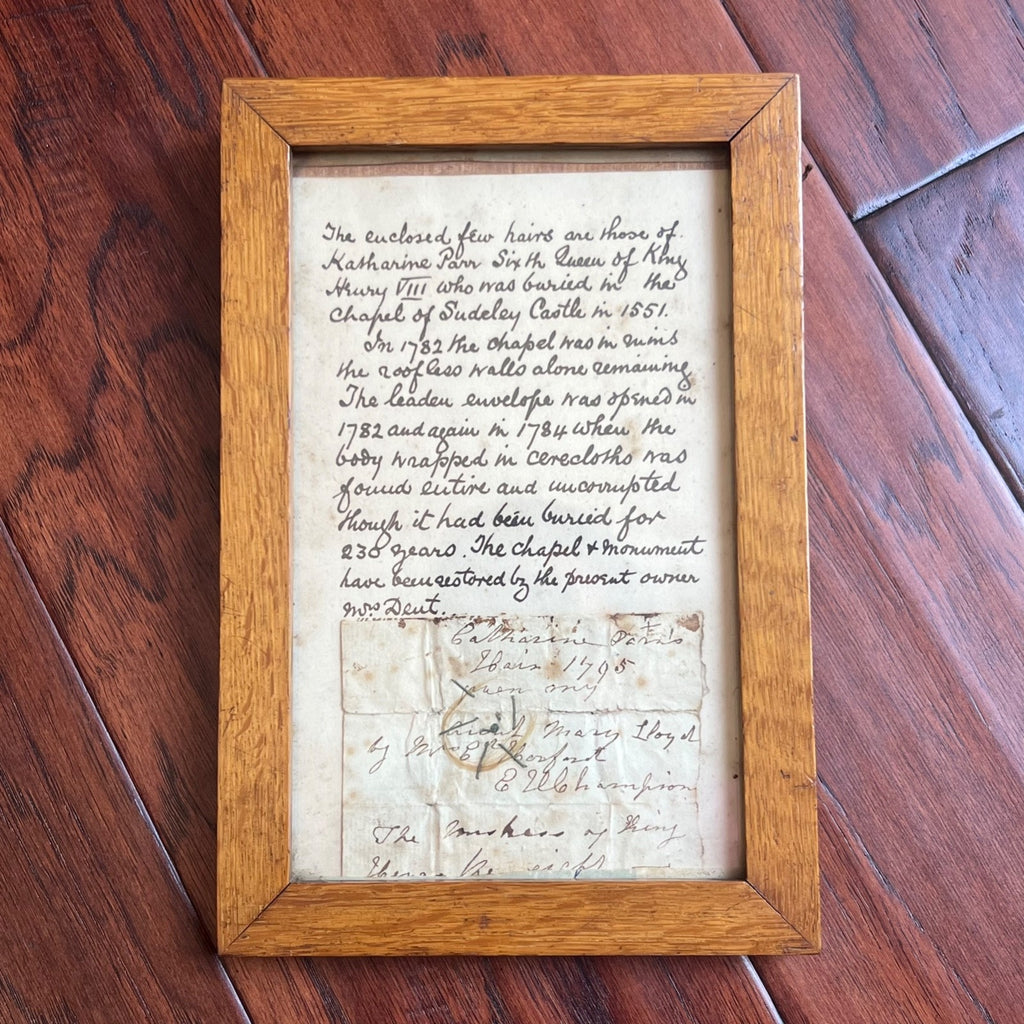 The enclosed few hairs are those of
Katharine Parr Sixth Queen of King
Henry VIII who was buried in the
chapel of Sudeley Castle in 1551.
In 1782 the chapel was in ruins
the roofless walls alone remaining
The leaden envelope was opened in
1782 and again in 1784 when the
body wrapped in cerecloths was
found entire and uncorrupted
though it had been buried for
230 years. The chapel & monument
have been restored by the present owner
Mrs Dent.
Catharine Parr's
Hair 1795
my
Aunt Mary Lloyd
by Mrs
E Champion
The of King
the eight